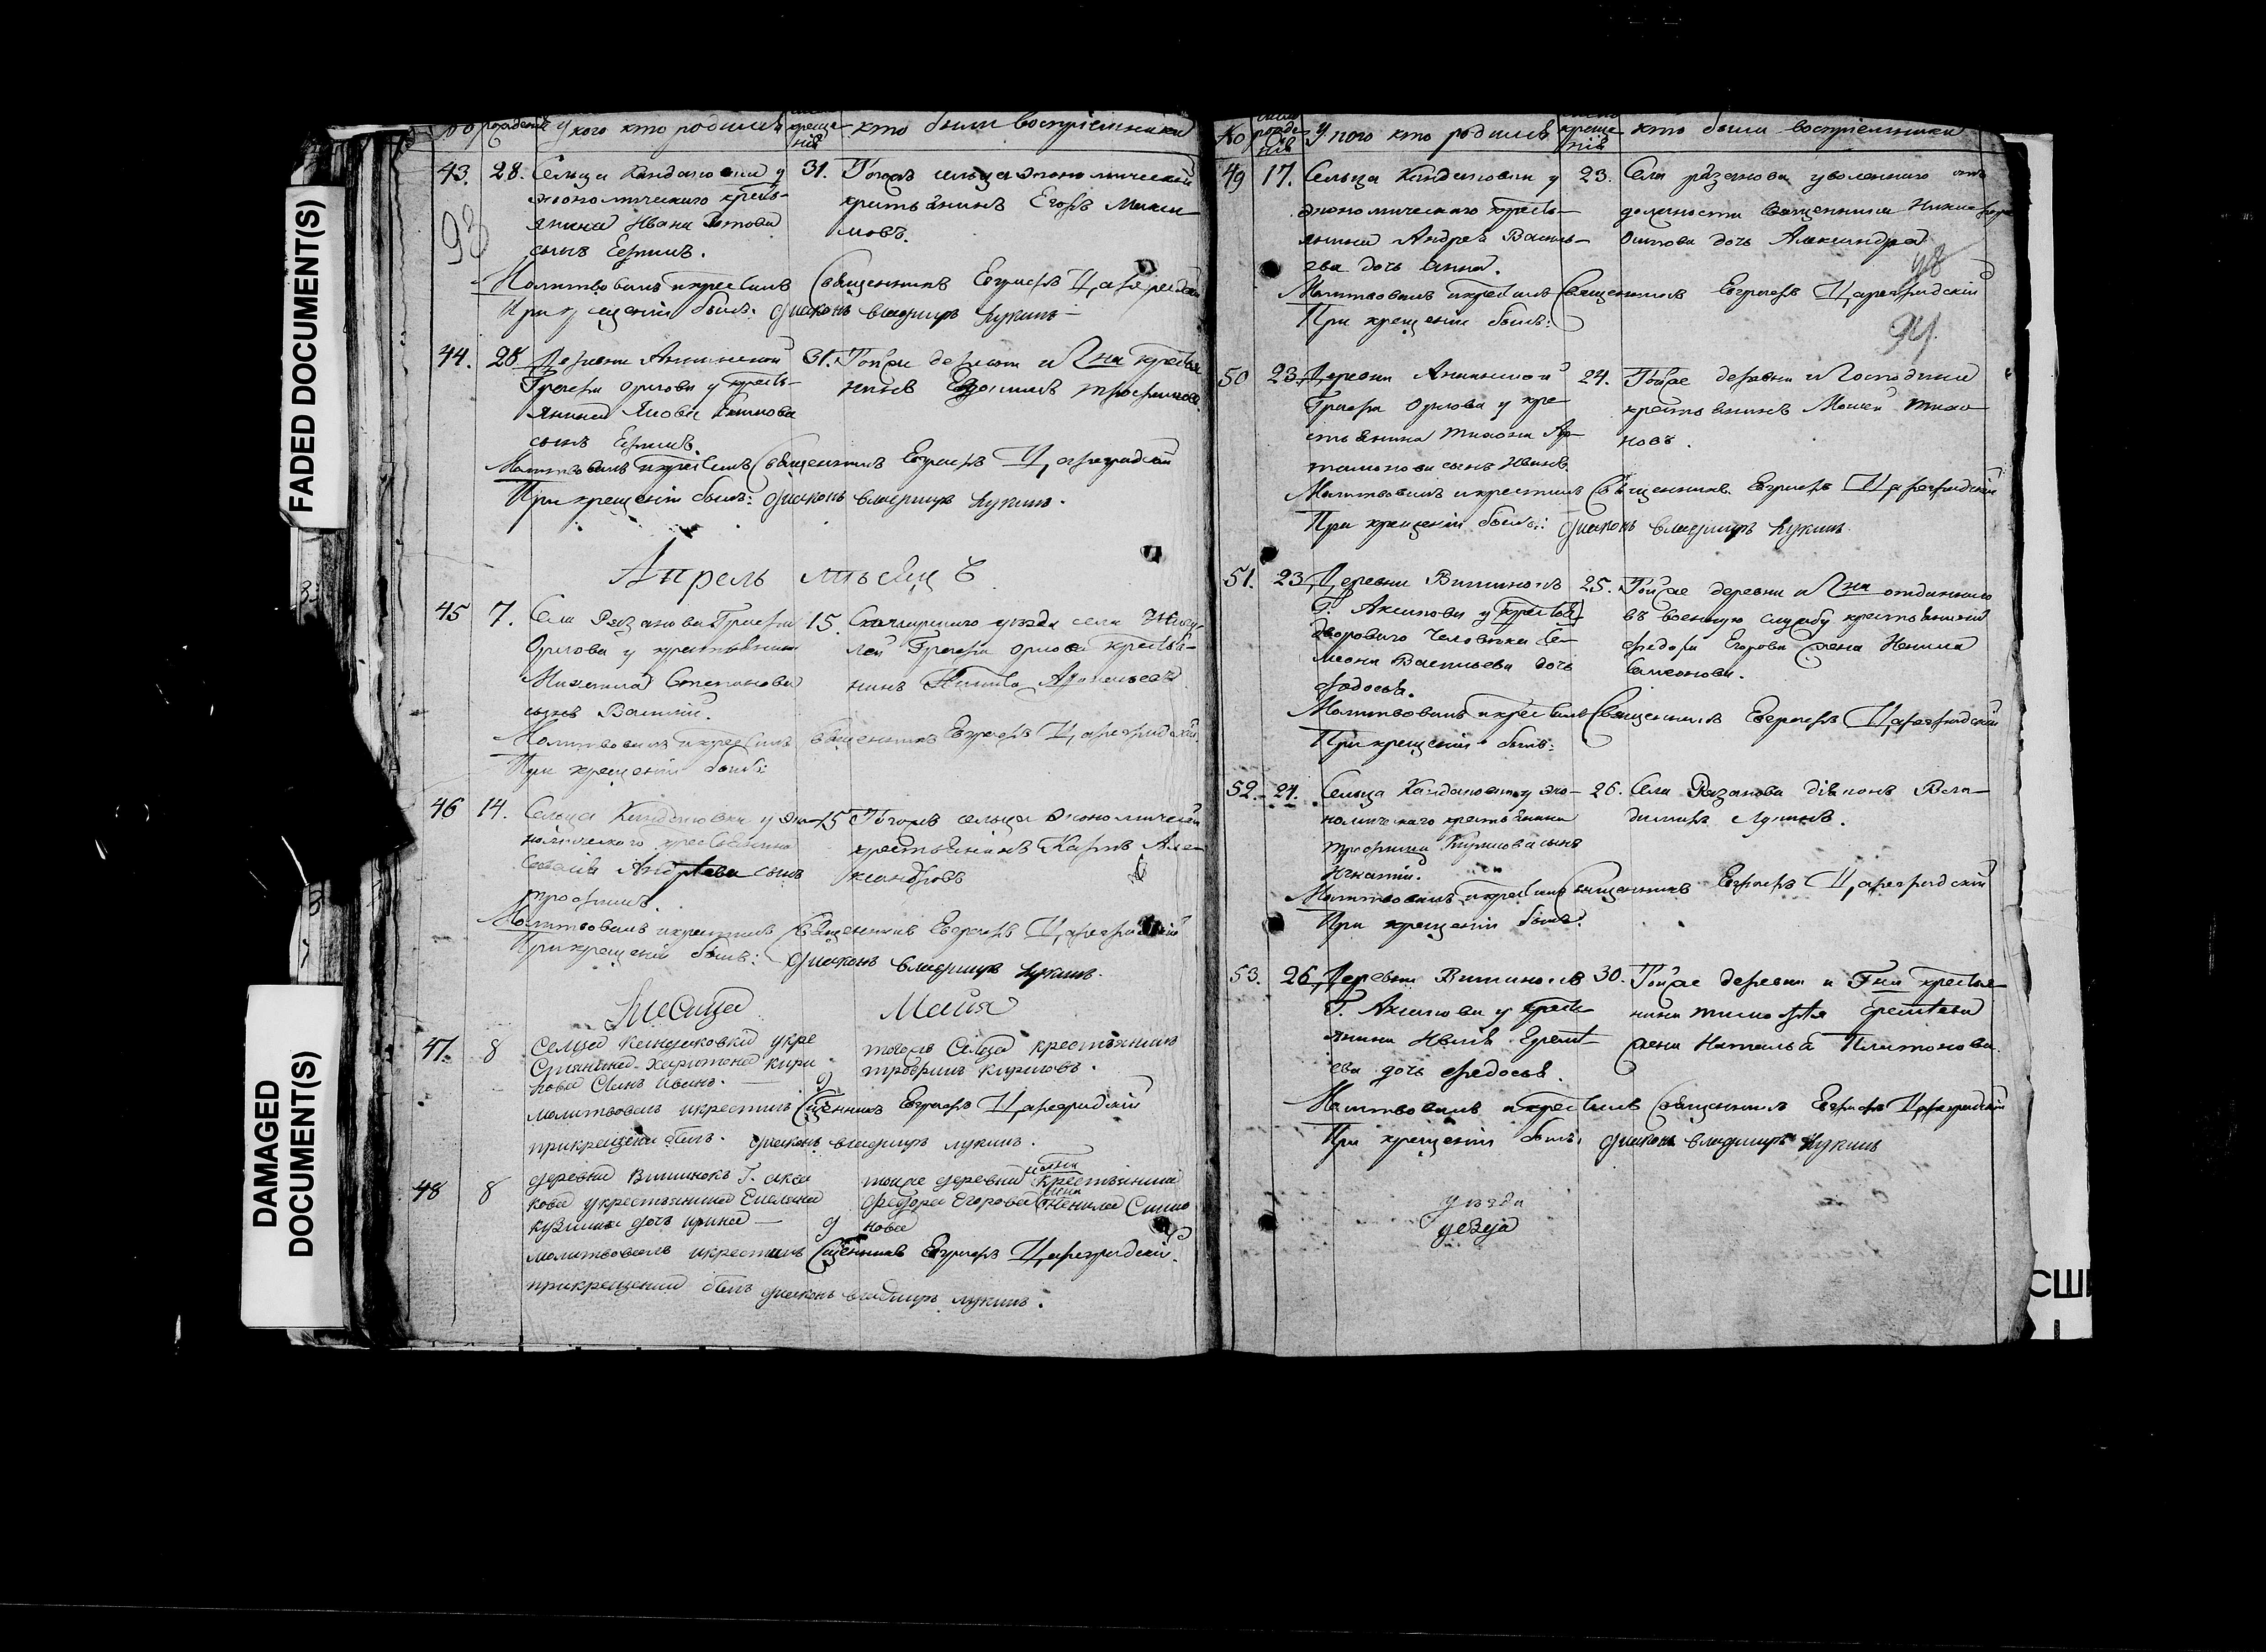 FADED DOCUMENT(S)
DAMAGED
DOCUMENT(S)
у кого кто родился
креще-
нія
кто были воспріемники
43. 28. Сельца Кандаковки у
экономическаго кресть-
янина Ивана
сынъ Ермилъ.
31. Тогожъ сельца экономической
крестьянинъ Егоръ Макси-
мовъ.
93
Молитвовалъ и крестилъ Священникъ Евграфъ Цареградскій
При крещеніи былъ: діаконъ Владимиръ Лукинъ
44. 28 Деревни Аннинской
Графа Орлова у кресть-
янина Якова
сынъ Ермилъ.
31. Тойже деревни и Гна крестья
нинъ Трофимовъ.
Молитвовалъ и крестилъ Священникъ Евграфъ Цареградскій
При крещеніи былъ: діаконъ Владимиръ Лукинъ.
Апрель мѣсяцъ
45 7. Села Разанова Графа
Орлова у крестьянина
Михаила Степанова
сынъ Василій.
15. уѣзда села
Графа Орлова крестья-
нинъ Никита
Молитвовалъ и крестилъ священникъ Евграфъ Цареградскій.
При крещеніи былъ:
46 14. Сельца Кандаковки у эко-
номическаго крестьянина
Савелія Андрѣева сынъ
Трофимъ.
15 Тогожъ сельца экономической
крестьянинъ Карпъ Але-
ксандровъ
Молитвовалъ и крестилъ Священникъ Евграфъ Цареградскій
При крещеніи былъ: діаконъ Владимиръ Лукинъ.
Месяца Маия
47. 8 Селца Кандаковки у кре
стьянина Харитона Кири
лова Сынъ Иванъ.
9
тогожъ Селца крестьянинъ
трофимъ кириловъ.
молитвовалъ и крестилъ Сщенникъ Евграфъ Цареградскій
при крещении былъ. діаконъ владимиръ лукинъ.
48 8 деревни Вишинокъ Г. акса
кова у крестьянина Емельяна
кузмина дочь ирина
9
тойже деревни крестьянина
федора Егорова жена Ненила Симио
нова
молитвовалъ и крестилъ Сщенникъ Евграфъ Цареградскій.
при крещении былъ діаконъ владимиръ лукинъ.
№
рожде-
нія
У кого кто родился
креще-
нія
кто были воспріемники
49 17. Сельца Кандаковки у
экономическаго кресть-
янина Андрея Василь-
ева дочь Анна.
23. Села разанова уволеннаго отъ
должности Священника Никифора
Осипова дочь Александра
98
94.
Молитвовалъ и крестилъ Священникъ Евграфъ Цареградскій
При крещеніи былъ:
50 23. Деревни Аннинской
Графа Орлова у кре-
стьянина Тихона Ар-
тамонова сынъ Иванъ.
24. Тойже деревни и Господина
крестьянинъ Моисей Тихо-
новъ.
Молитвовалъ и крестилъ Священникъ Евграфъ Цареградскій
При крещеніи былъ: діаконъ Владимиръ Лукинъ.
51. 23 Деревни Вишинокъ
Г. Аксакова у
двороваго человѣка Се-
миона Васильева дочь
Федосья.
25. Тойже деревни и Гна отданнаго
въ военную службу крестьянина
федора Егорова жена Ненила
Симеонова.
Молитвовалъ и крестилъ Священникъ Евграфъ Цареградскій
При крещеніи былъ:
52. 24. Сельца Кандаковки у эко-
номическаго крестьянина
Трофима Кирилова сынъ
Игнатій.
26. Села Разанова діаконъ Вла-
димиръ Лукинъ.
Молитвовалъ и крестилъ священникъ Евграфъ Цареградскій
При крещеніи былъ:
53. 26 Деревни Вишинокъ
Г. Аксакова у кресть-
янина Ивана Еремѣ-
ева дочь Федосья.
30. Тойже деревни и Гна крестья-
нина Тимофѣя Еремѣева
жена Наталья Платонова.
Молитвовалъ и крестилъ Священникъ Евграфъ Цареградскій
При крещеніи былъ: діаконъ Владимиръ Лукинъ
уѣзда
уезда